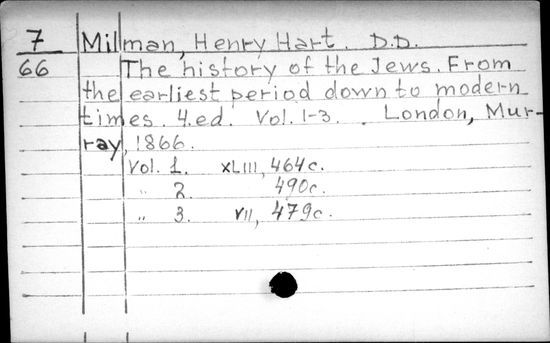 7 Milman, Henry Hart. D.D.
66 The history of the Jews. From
the earliest period down to modern
times. 4.ed. Vol. 1-3. London, Mur-
ray, 1866.
Vol. 1. XLIII, 464c.
" 2. 490c.
" 3. VII, 479c.